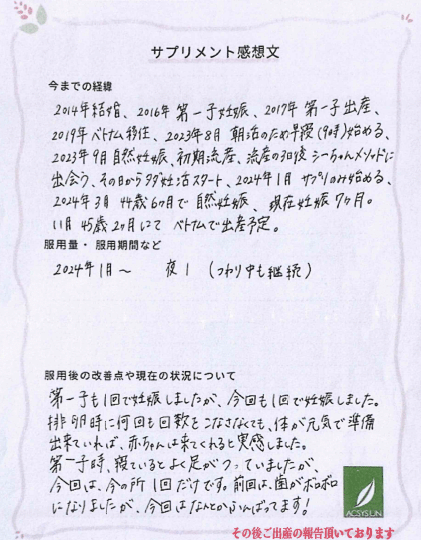 サプリメント感想文
今までの経緯
2014年結婚、2016年 第一子妊娠、2017年 第一子出産、
2019年 ベトナム移住、2023年8月 朝活のため早寝(9時)始める、
2023年9月 自然妊娠、初期流産、流産の3日後 シーちゃんメソッドに
出会う、その日からタダ妊活スタート、2024年1月 サプリのみ始める、
2024年3月 44歳6ヶ月で自然妊娠、現在妊娠7ヶ月。
11月 45歳2ヶ月にて ベトナムで出産予定。
服用量・服用期間など
2024年1月～ 夜1 (つわり中も継続)
服用後の改善点や現在の状況について
第一子も1回で妊娠しましたが、今回も1回で妊娠しました。
排卵時に何回も回数をこなさなくても、体が元気で準備
出来ていれば、赤ちゃんは来てくれると実感しました。
第一子時、寝ているとよく足がつっていましたが、
今回は、今の所1回だけです。前回は、歯がボロボロ
になりましたが、今回はなんとかふんばってます!
ACSYSIUN
その後ご出産の報告頂いております